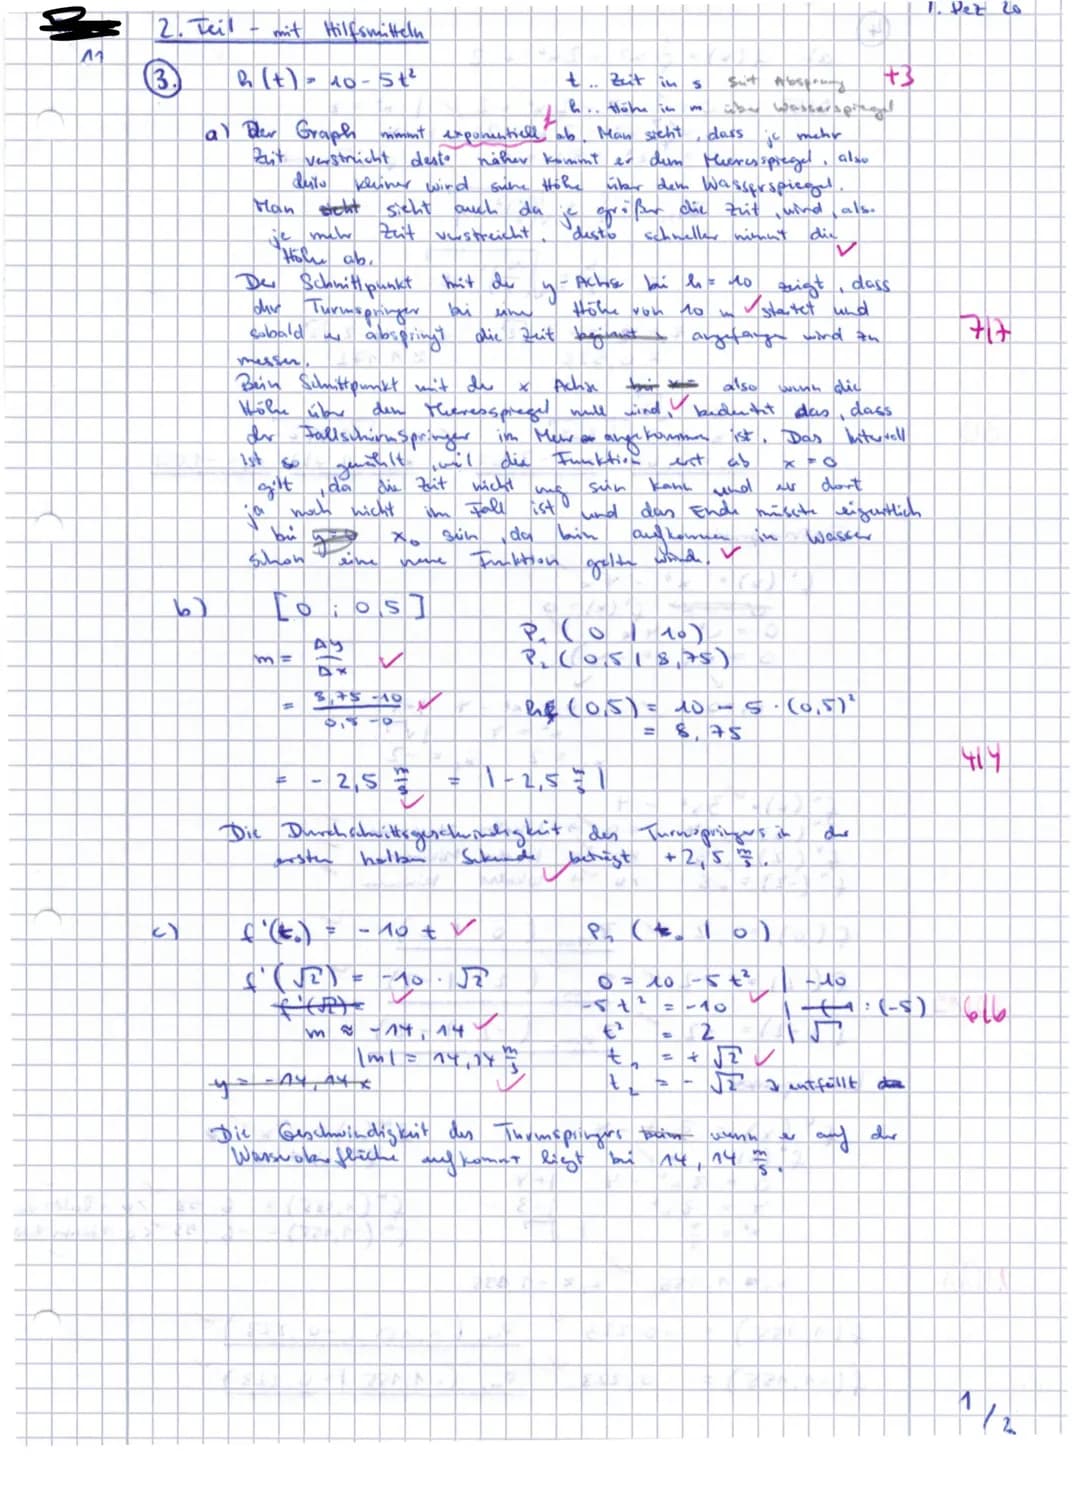 11. Dez 20
2. Teil - mit Hilfsmitteln
11
3. h(t) = 10 - 5t² t .. Zeit in s seit Absprung +3
h .. Höhe in m über Wasserspiegel
a) Der Graph nimmt exponentiell ab. Man sieht, dass je mehr
Zeit verstreicht desto näher kommt er dem Meeresspiegel, also
desto kleiner wird seine Höhe über dem Wasserspiegel.
Man sieht auch da je größer die Zeit wird, also
je mehr Zeit verstreicht, desto schneller nimmt die
Höhe ab. ✓
Der Schnittpunkt mit der y-Achse bei h = 10 zeigt, dass
der Turmspringer bei einer Höhe von 10 m ✓ startet und
sobald er abspringt die Zeit angefangen wird zu 7/7
messen.
Beim Schnittpunkt mit der x Achse also wenn die
Höhe über dem Meeresspiegel null wird, ✓ bedeutet das, dass
der Fallschirmspringer im Meer angekommen ist. Das Intervall
ist so gewählt, weil die Funktion erst ab x = 0
gilt, da die Zeit nicht neg sein kann und er dort
ja noch nicht im Fall ist und das Ende müsste eigentlich
bei x₀ sein, da beim aufkommen in Wasser
schon eine neue Funktion gelten würde. ✓
b) [0 ; 0,5]
P₁ (0 | 10)
m = Δy/Δx ✓ P₂ (0,5 | 8,75)
= (8,75 - 10)/(0,5 - 0) ✓ h (0,5) = 10 - 5 · (0,5)²
= 8,75
= - 2,5 m/s ✓ = |-2,5 m/s| 4/4
Die Durchschnittsgeschwindigkeit des Turmspringers in der
ersten halben Sekunde beträgt +2,5 m/s. ✓
c) f'(t₀) = -10 t ✓ P₁ (t₀ | 0)
f'(√2) = -10 · √2 ✓ 0 = 10 - 5t² | -10
f'(√2) = -5t² = -10 ✓ | : (-5) 6/6
m ≈ -14,14 ✓ t² = 2 | √
|m| = 14,14 m/s ✓ t₁ = +√2 ✓
y = -14,14x t₂ = -√2 → entfällt
Die Geschwindigkeit des Turmspringers wenn er auf der
Wasseroberfläche aufkommt liegt bei 14,14 m/s.
1/2